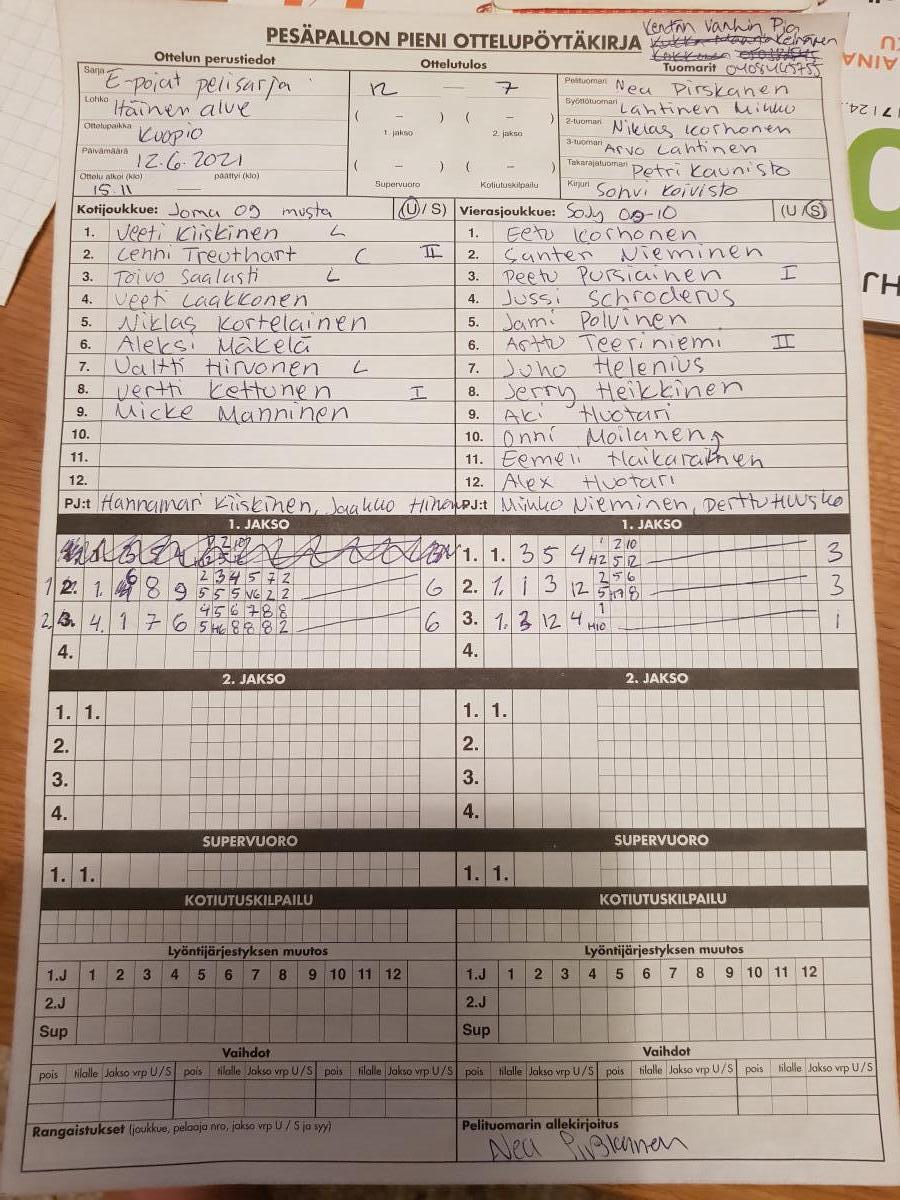 Kentän Vanhin Pia
PESÄPALLON PIENI OTTELUPÖYTÄKIRJA
Keinänen
Ottelun perustiedot
Ottelutulos
Tuomarit 0405445755
Sarja E-pojat pelisarja
Lohko Itäinen alue
Ottelupaikka Kuopio
Päivämäärä 12.6.2021
Ottelu alkoi (klo) päättyi (klo)
15.11 —
12 — 7
( – ) ( – )
1. jakso 2. jakso
( – ) ( – )
Supervuoro Kotiutuskilpailu
Pelituomari Nea Pirskanen
Syöttötuomari Lahtinen Mikko
2-tuomari Niklas Korhonen
3-tuomari Arvo Lahtinen
Takarajatuomari Petri Kaunisto
Kirjuri Sohvi Koivisto
Kotijoukkue: Joma 09 musta (U/S)
1. Veeti Kiiskinen L
2. Lenni Treuthart C II
3. Toivo Saalasti L
4. Veeti Laakkonen
5. Niklas Kortelainen
6. Aleksi Mäkelä
7. Valtti Hirvonen L
8. Vertti Kettunen I
9. Micke Manninen
10.
11.
12.
PJ:t Hannamari Kiiskinen, Jaakko
Vierasjoukkue: SoJy 09-10 (U/S)
1. Eetu Korhonen
2. Santeri Nieminen
3. Peetu Pursiainen I
4. Jussi Schroderus
5. Jami Polvinen
6. Arttu Teeriniemi II
7. Juho Helenius
8. Jerry Heikkinen
9. Aki Huotari
10. Onni Moilanen
11. Eemeli Haikarainen
12. Alex Huotari
PJ:t Mikko Nieminen, Perttu
1. JAKSO
1. 2. 1. 6 8 9 2 3 4 5 7 2 6
5 5 5 V6 2 2
2. 3. 4. 1 7 6 4 5 6 7 8 8 6
5 H6 8 8 8 2
4.
1. JAKSO
1. 1. 3 5 4 1 2 10 3
H2 5 12
2. 1. 1 3 12 2 5 6 3
5 H7 8
3. 1. 3 12 4 1 1
H10
4.
2. JAKSO
1. 1.
2.
3.
4.
2. JAKSO
1. 1.
2.
3.
4.
SUPERVUORO
1. 1.
SUPERVUORO
1. 1.
KOTIUTUSKILPAILU
KOTIUTUSKILPAILU
Lyöntijärjestyksen muutos
1.J 1 2 3 4 5 6 7 8 9 10 11 12
2.J
Sup
Lyöntijärjestyksen muutos
1.J 1 2 3 4 5 6 7 8 9 10 11 12
2.J
Sup
Vaihdot
pois tilalle Jakso vrp U/S pois tilalle Jakso vrp U/S pois tilalle Jakso vrp U/S
Vaihdot
pois tilalle Jakso vrp U/S pois tilalle Jakso vrp U/S pois tilalle Jakso vrp U/S
Rangaistukset (joukkue, pelaaja nro, jakso vrp U / S ja syy)
Pelituomarin allekirjoitus
Nea Pirskanen